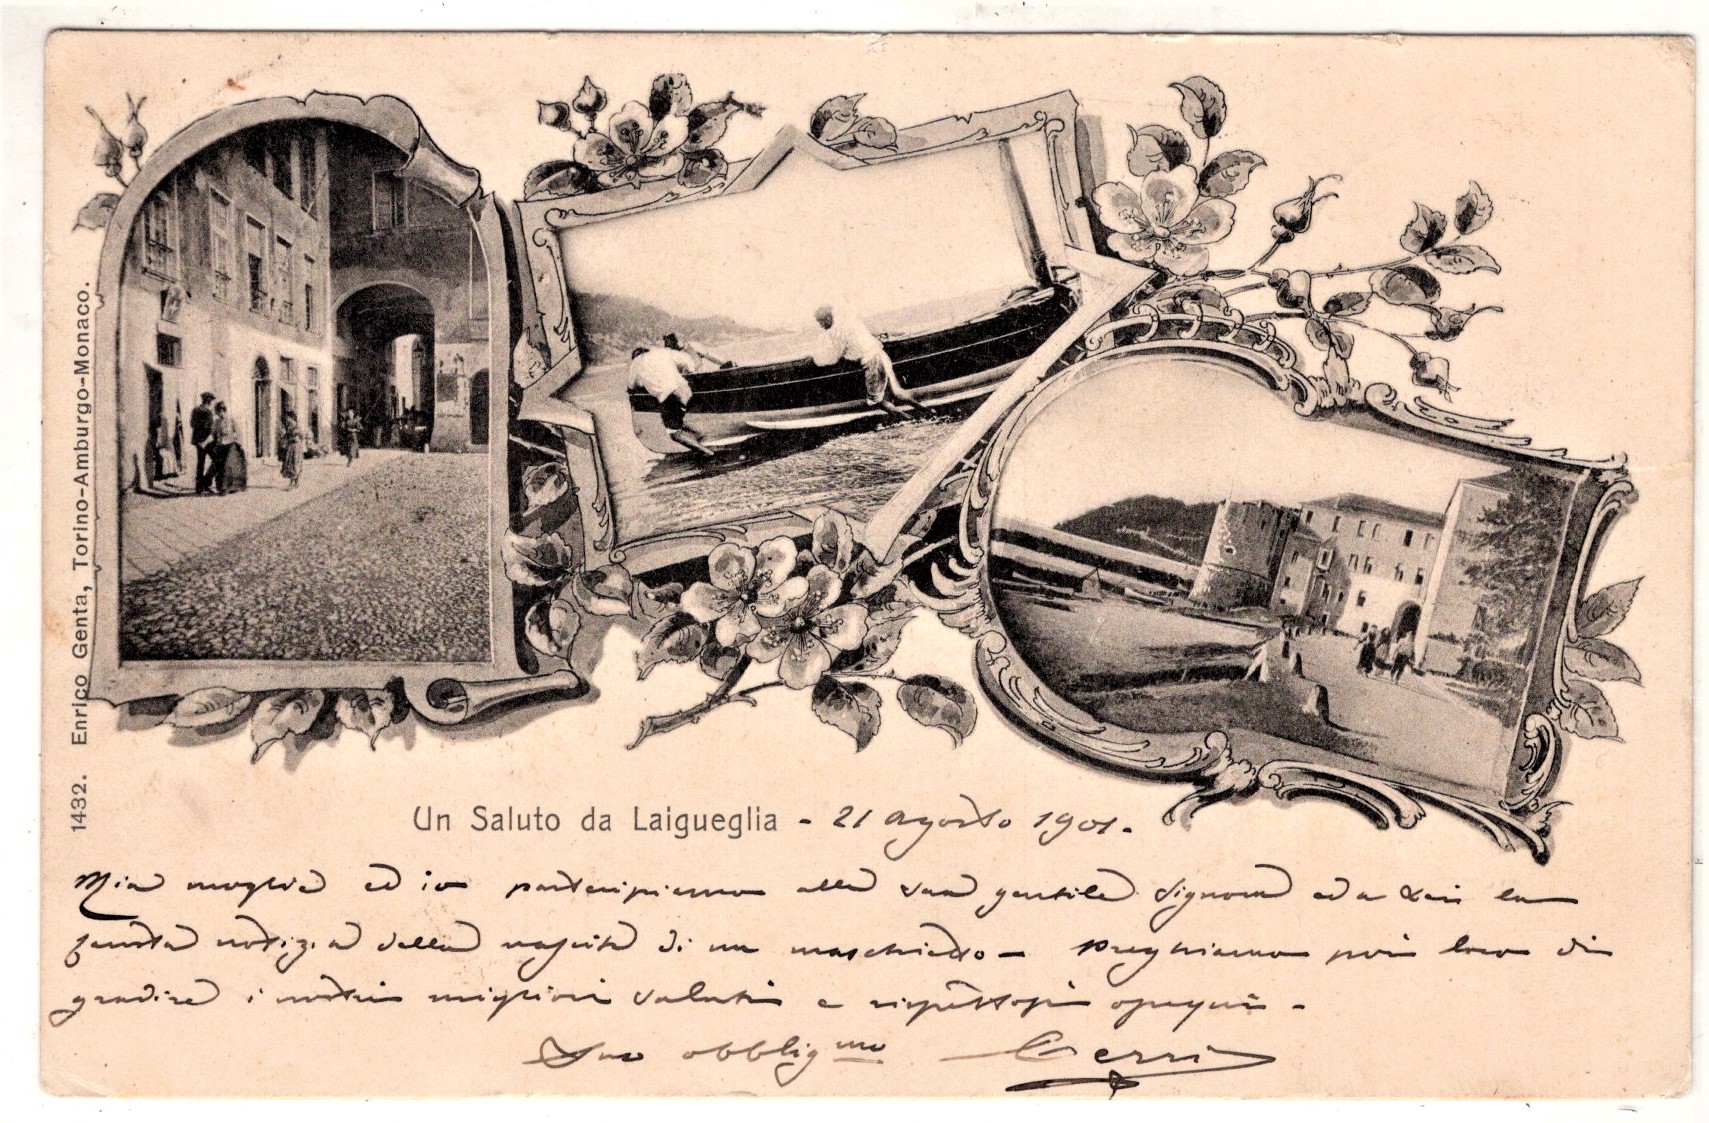 1432. Enrico Genta, Torino-Amburgo-Monaco.
Un Saluto da Laigueglia - 21 agosto 1901.
Mia moglie ed io partecipiamo alla sua gentile Signora ed a Lei la
fausta notizia della nascita di un maschietto - Preghiamo poi loro di
gradire i nostri migliori saluti e rispettosi ossequi -
Suo obbligmo